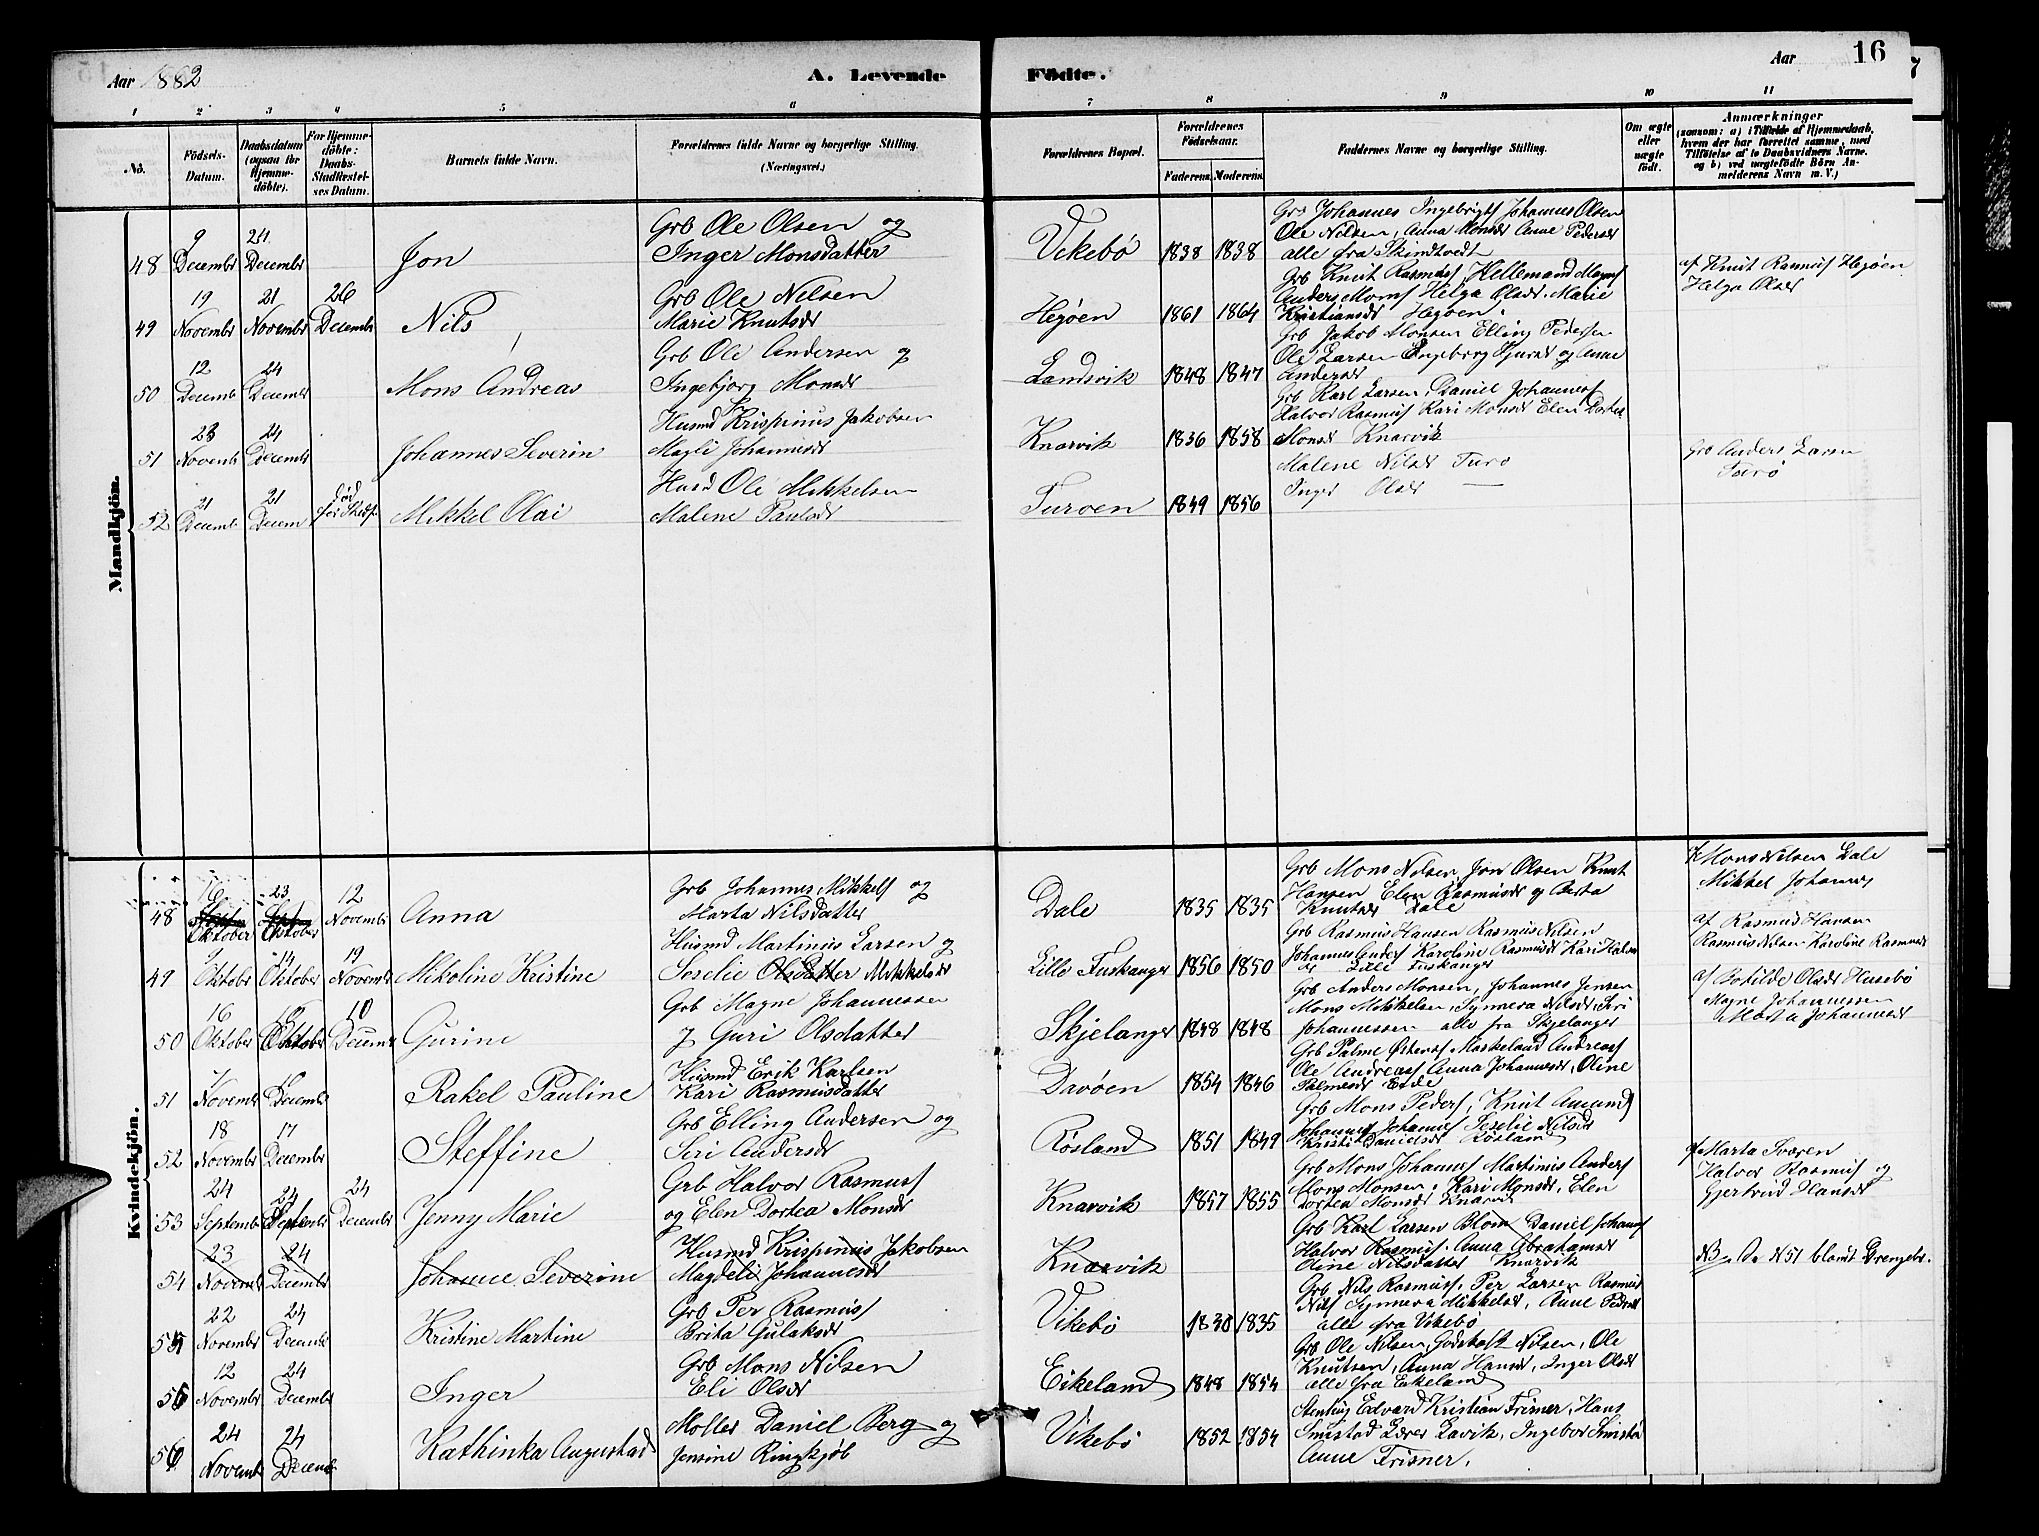 Aar 1882
A. Levende Fødte.
Aar 16
1 2 3 4 5 6 7 8 9 10 11
No.
Fødsels-Datum.
Daabsdatum (ogsaa for Hjemmedöbte).
For Hjemmedöbte: Daabs-Stadfæstelses Datum.
Barnets fulde Navn.
Forældrenes fulde Navne og borgerlige Stilling. (Næringsvei.)
Forældrenes Bopæl.
Forældrenes Fødselsaar.
Faderens. Moderens.
Faddernes Navne og borgerlige Stilling.
Om ægte eller uægte födt.
Anmærkninger
(saasom: a) i Tilfælde af Hjemmedaab, hvem der har forrettet samme, med Tilföielse af to Daabsvidners Navne, og b) ved uægtefödte Börn Anmelderens Navn m. V.)
Mandkjön.
48 9 Decembr 24 Decembr Jon
Grb Ole Olsen og
Inger Monsdatter
Vikebö 1838 1838
Grb Johannes Ingebrigts Johannes Olsen
Ole Nilsen, Anna Monsd Anne Pedersd
alle fra
49 19 Novembr 21 Novembr 26 Decembr Nils
Grb Ole Nilsen
Marie Knutsd
Hegöen 1861 1864
Grb Knut Rasmus Hellemand Magns
Anders Mons Helga Olsd. Marie
Kristiansd Hegöen.
af Knut Rasmus Hegöen
Helga Olsd
50 12 Decemb 24 Decembr Mons Andreas
Grb Ole Andersen og
Ingebjorg Monsd
Landsvik 1848 1847
Grb Jakob Monsen Elling Pedersen
Ole Larsen Ingeborg og Anne
Andersd
51 23 Novembr 24 Decembr Johannes Severin
Husmd Krispinus Jakobsen
Magli Johannesd
Knarvik 1836 1858
Grb Karl Larsen, Daniel Johanness
Halvor Rasmus Kari Monsd Elen Dortea
Monsd Knarvik
52 21 Decemb 21 Decem død Mikkel Olai
Husd Ole Mikkelsen
Malene Paulsd
Turoen 1849 1856
Malene Nilsd Turo
Inger Olsd —
Grb Anders Larsen
Turö
Kvindekjön.
48 16 Oktober 23 Oktober 12 Novembr Anna
Grb Johannes Mikkels og
Marta Nilsdatter
Dale 1835 1835
Grb Mons Nilsen, Jon Olsen Knut
Hansen Elen Rasmusd og Berta
Knutsd Dale
Mons Nilsen Dale
Mikkel Johannes
49 9 Oktober 14 Oktober 19 Novembr Nikoline Kristine
Husmd Martinus Larsen og
Seselie Olsdatter Mikkelsd
Lille Tuskanger 1856 1850
Grb Rasmus Hansen Rasmus Nilsen
Johannes Anders Karoline Rasmusd Kari
Lille Tuskanger
af Rasmus Hansen
Rasmus Nilsen Karoline Rasmusd
50 16 Oktober 18 Oktober 10 Decembr Gurine
Grb Magne Johannessen
og Guri Olsdatter
Skjelanger 1848 1848
Grb Anders Monsen, Johannes Jensen
Mons Mikkelsen, Synneva Nilsd, Siri
Johannessen alle fra Skjelanger
af Botilde Olsd Husebö
Magne Johannessen
Marta Johannesd
51 Novembr Decembr Rakel Pauline
Husmd Erik Karlsen
Kari Rasmusdatter
Davöen 1854 1846
Grb Palme Östens Maskeland Andreas
Ole Andreas Anna Johannesd, Oline
Palmesd Eide
52 18 Novembr 17 Decembr Steffine
Grb Elling Andersen og
Siri Andersd
Rösland 1851 1849
Grb Mons Peders, Knut Amunds
Johannes Johannes Seselie Nilsd
Kristi Danielsd Rösland
53 24 Septembr 24 Septembr 24 Decembr Jenny Marie
Grb Halvor Rasmuss
og Elen Dortea Monsd
Knarvik 1857 1855
Grb Mons Johannes Martinus Anders
Mons Monsen, Kari Monsd, Elen
Dortea Monsd Knarvik
af Marta Tværen
Halvor Rasmus og
Gjertrud Hansd
54 23 Novembr 24 Decembr Johanne Severine
Husmd Krispinus Jakobsen
Magdeli Johannesd
Knarvik
Grb Karl Larsen Blom Daniel Johanns
Halvor Rasmus. Anna Abrahamsd
Oline Nilsdatter Knarvik
NB. Se N 51 blandt Drengebr.
55 22 Novembr 24 Decembr Kristine Martine
Grb Per Rasmuss
Brita Gulaksd
Vikebö 1830 1835
Grb Nils Rasmuss, Per Larsen Rasmus
Nils Synneva Mikkelsd, Anne Pedersd
alle fra Vikebö
56 12 Novembr 24 Decembr Inger
Grb Mons Nilsen
Eli Olsd
Eikeland 1848 1854
Grb Ole Nilsen, Godskalk Nilsen, Ole
Knutsen, Anna Hansd, Inger Olsd
alle fra Eikeland
56 24 Novembr 24 Decemb Kathinka Augustad
Møller Daniel Berg og
Jensine Ringkjöb
Vikebö 1852 1854
Edvard Kristian Frisner, Hans
Smistad Lærer Lavik, Ingebor Smistad
Anne Frisner.